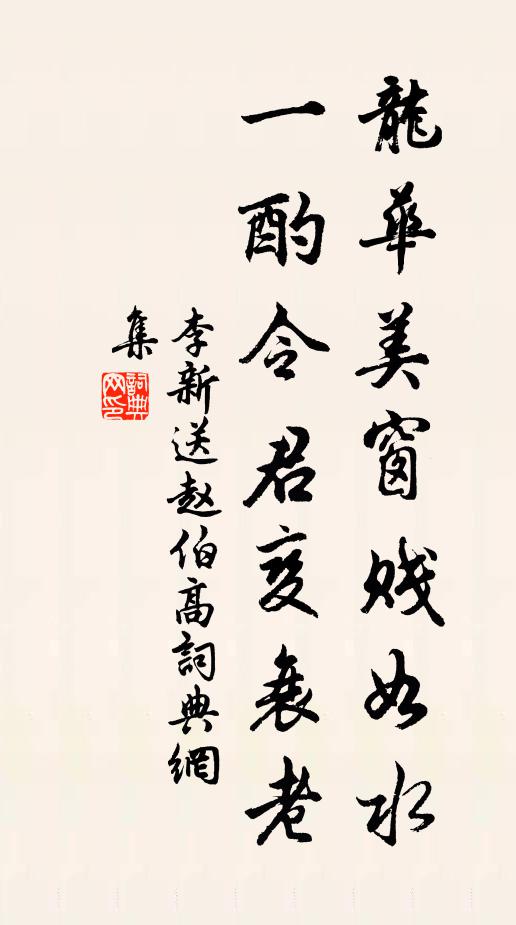 龍華美窗賤如水
一酌令君变衰老
李新送赵伯高詞典網
集
詞典网印